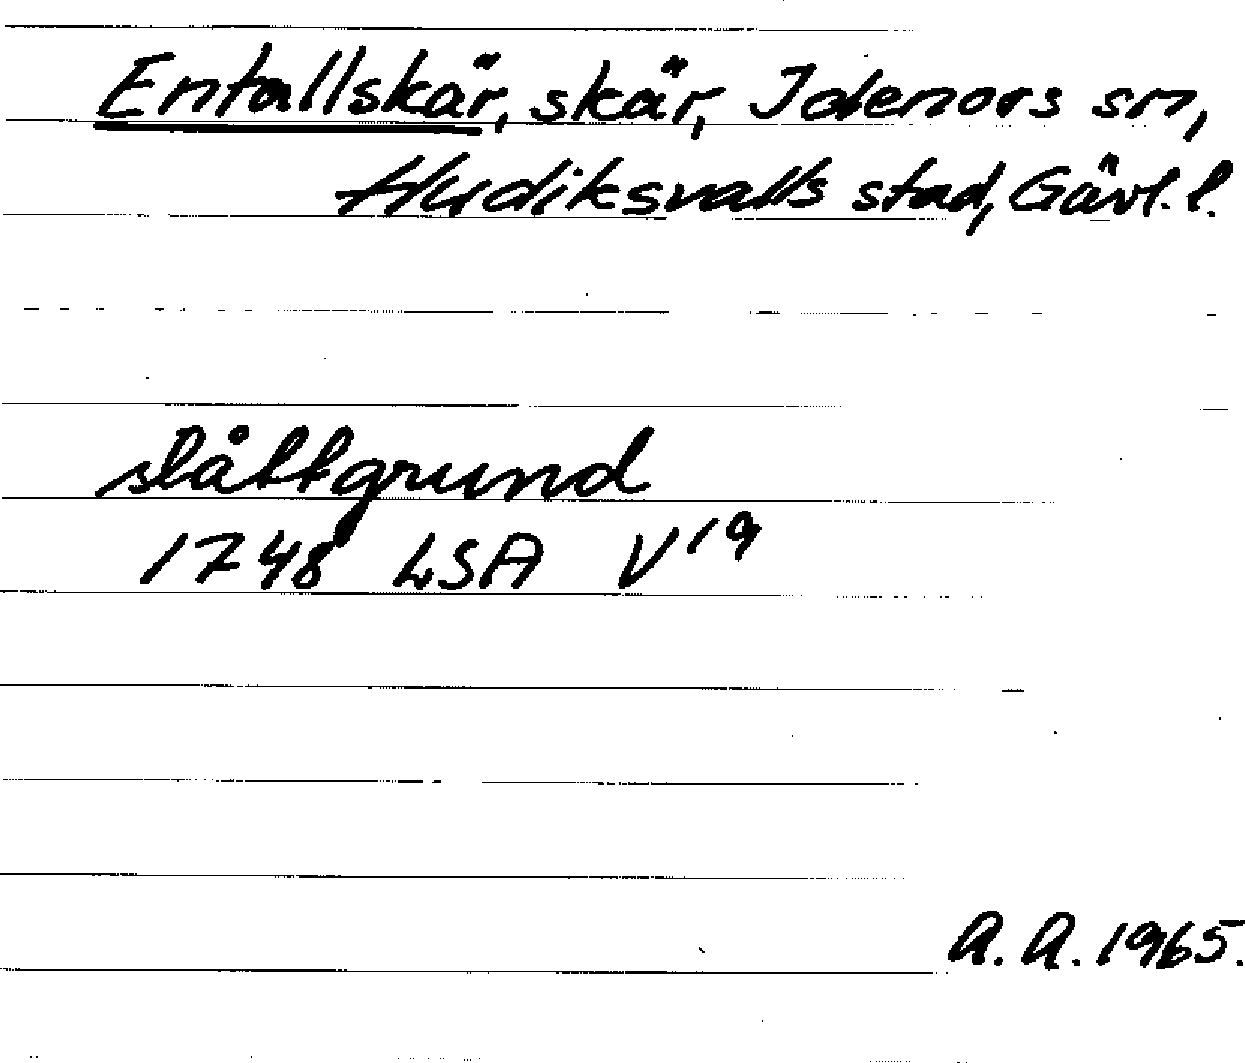 Entallskär, skär, Idenors sn,
Hudiksvalls stad, Gävl. l.
slåttgrund
1748 LSA V¹⁹
A. A. 1965.